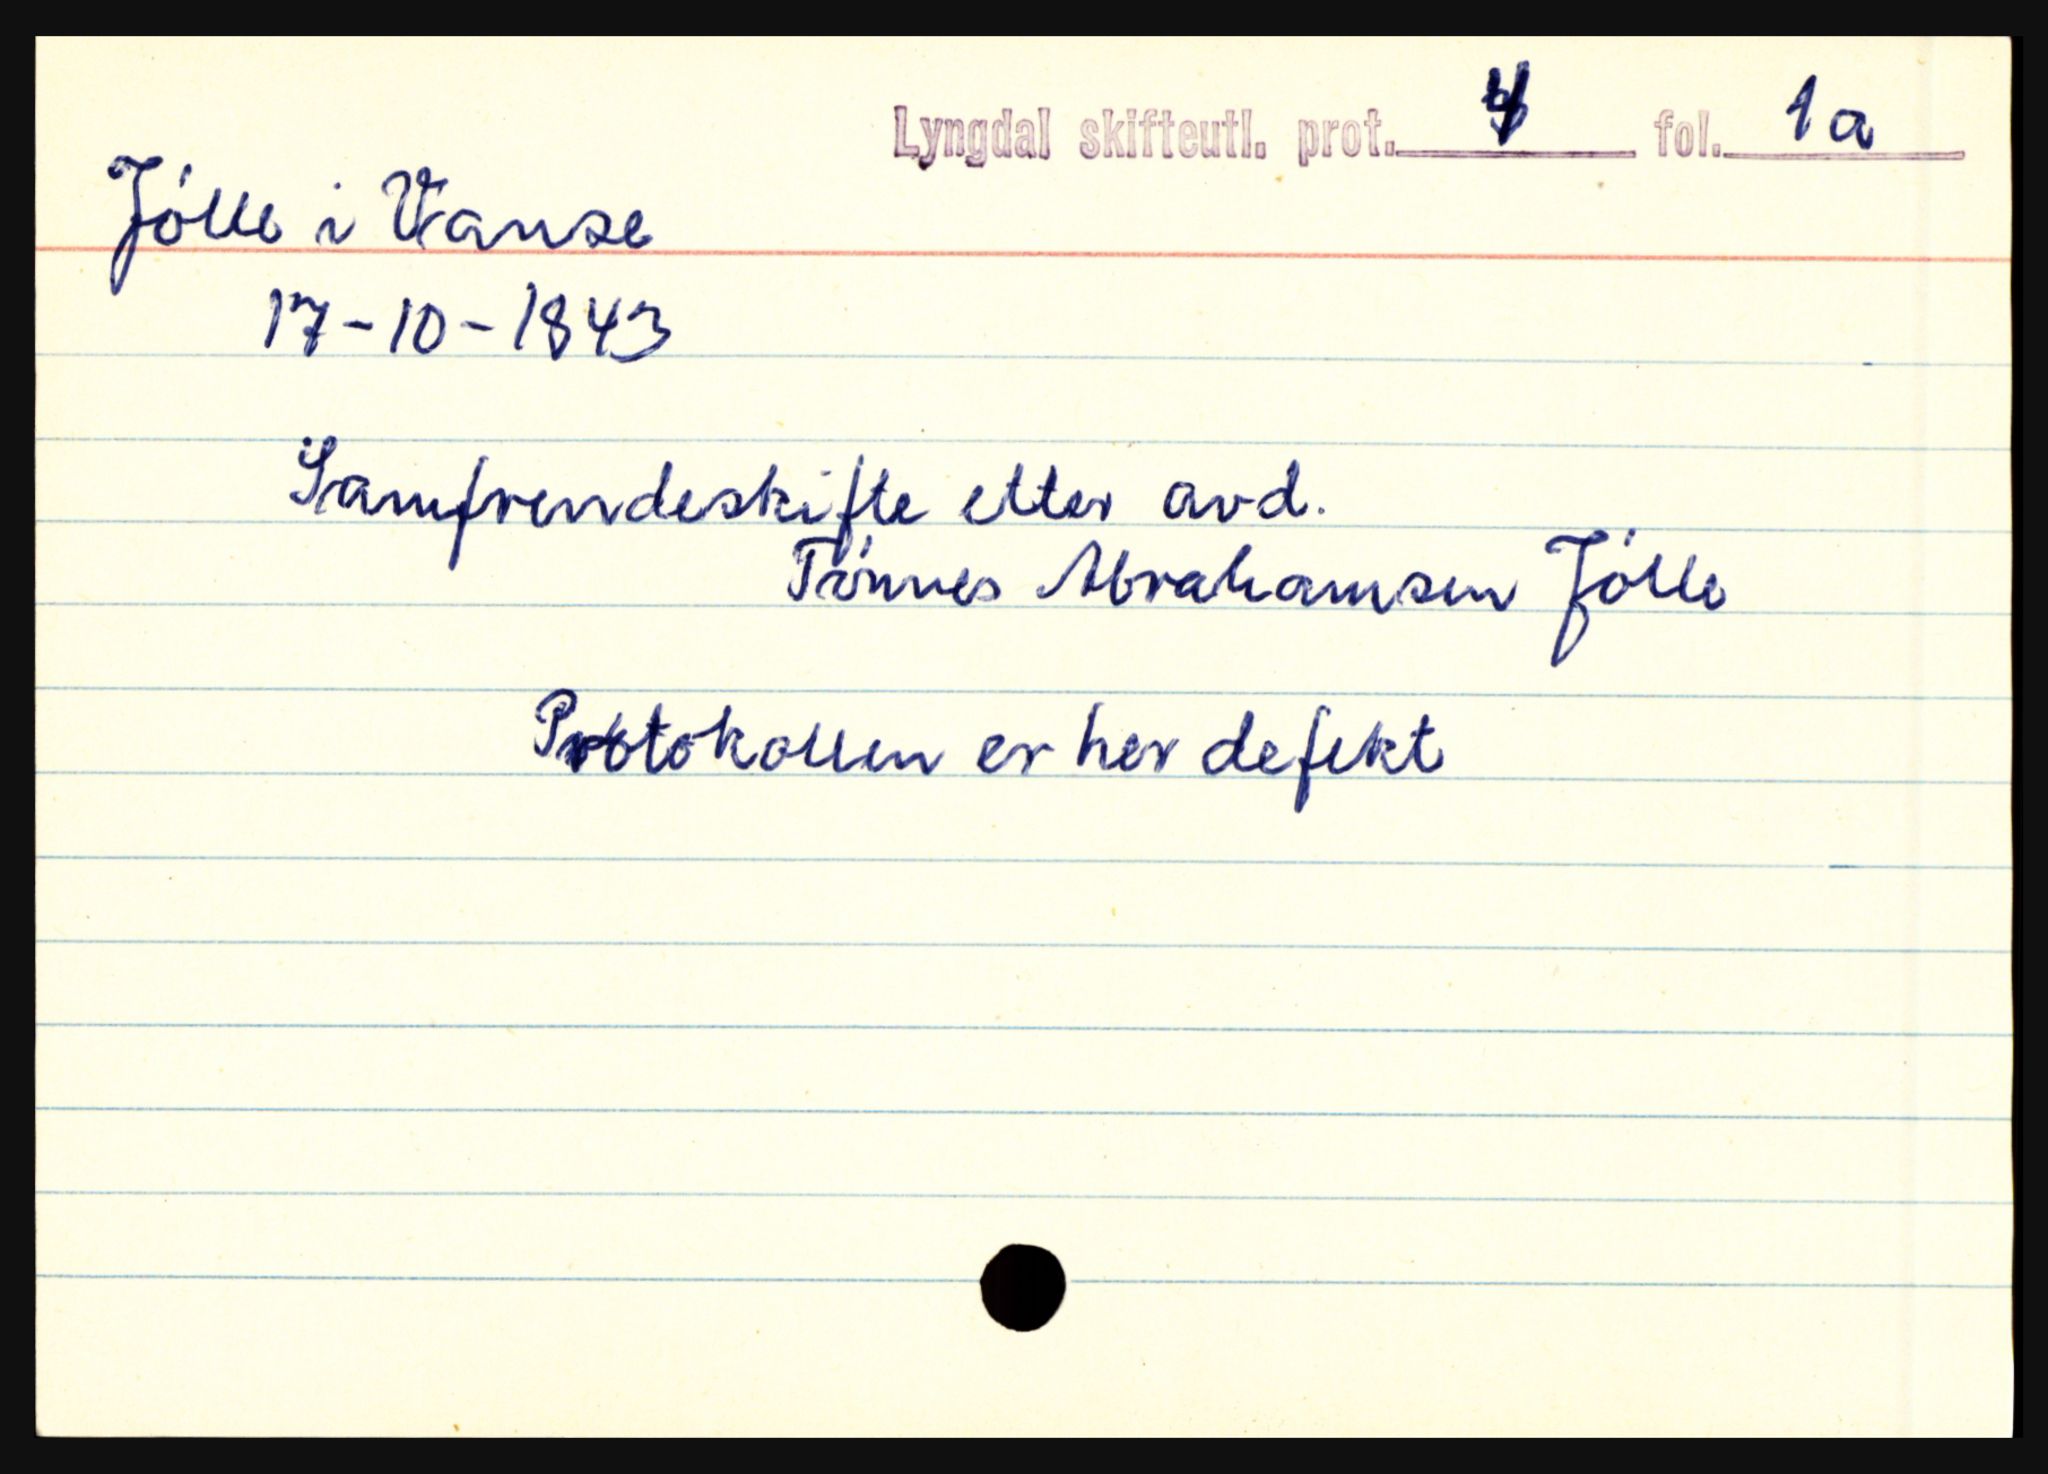 Lyngdal skifteutl. prot. 4 fol. 1a
Jölle i Vanse
17-10-1843
Samfrendeskifte etter avd.
Tönnes Abrahamsen Jölle
Protokollen er her defekt